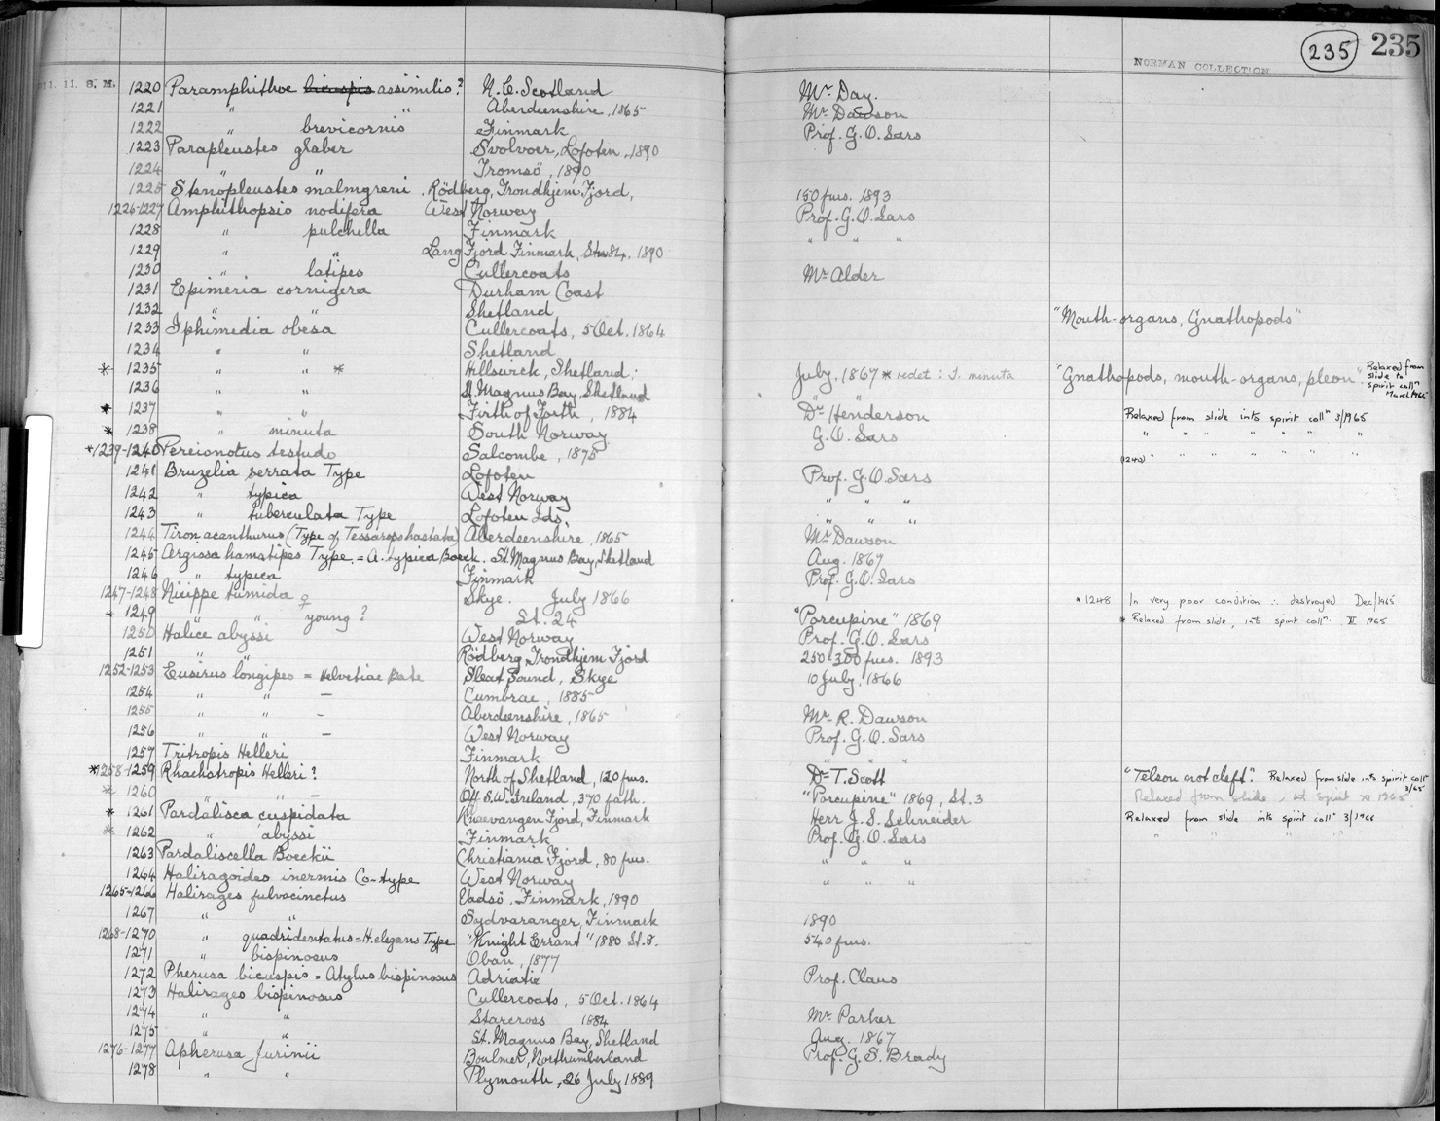 235 235
NORMAN COLLECTION
11. 11. 8. M. 1220 Paramphithoe bicuspis assimilis? N.E. Scotland Mr. Day.
1221 " " Aberdeenshire, 1865 Mr. Dawson
1222 " brevicornis Finmark Prof. G.O. Sars
1223 Parapleustes glaber Svolvoer, Lofoten, 1890
1224 " " Tromsö, 1890
1225 Stenopleustes malmgreni Rödberg, Trondhjem Fjord, 150 fms. 1893
1226-1227 Amphithopsis nodifera West Norway Prof. G.O. Sars
1228 " pulchella Finmark " " "
1229 " " Lang Fjord Finmark, 1890
1230 " latipes Cullercoats Mr. Alder
1231 Epimeria cornigera Durham Coast
1232 " " Shetland "Mouth-organs, Gnathopods"
1233 Iphimedia obesa Cullercoats, 5 Oct. 1864
1234 " " Shetland
* 1235 " " * Hillswick, Shetland; July. 1867 * redet: I. minuta "Gnathopods, mouth-organs, pleon" Relaxed from slide to spirit colln March 1965
1236 " " St. Magnus Bay, Shetland " "
* 1237 " " Firth of Forth, 1884 Dr. Henderson Relaxed from slide into spirit colln 3/1965
* 1238 " minuta South Norway G.O. Sars " " " " " " "
* 1239-1240 Pereionotus testudo Salcombe, 1875 (1240) " " " " " " "
1241 Bruzelia serrata Type Lofoten Prof. G.O. Sars
1242 " typica West Norway " " "
1243 " tuberculata Type Lofoten Ids. " " "
1244 Tiron acanthurus (Type of Tessarops hastata) Aberdeenshire, 1865 Mr. Dawson
1245 Argissa hamatipes Type = A. typica Boeck. St. Magnus Bay, Shetland Aug. 1867
1246 " typica Finmark Prof. G.O. Sars
1247-1248 Nicippe tumida ♀ Skye. July 1866 * 1248 In very poor condition ∴ destroyed Dec/1965
* 1249 " " young? St. 24 "Porcupine" 1869 * Relaxed from slide, into spirit colln. II 1965
1250 Halice abyssi West Norway Prof. G.O. Sars
1251 " " Rödberg, Trondhjem Fjord 250-300 fms. 1893
1252-1253 Eusirus longipes = Helvetiae Bate Sleat Sound, Skye 10 July, 1866
1254 " " — Cumbrae, 1885
1255 " " — Aberdeenshire, 1865 Mr. R. Dawson
1256 " " — West Norway Prof. G.O. Sars
1257 Tritropis Helleri Finmark " " "
* 1258-1259 Rhachotropis Helleri? North of Shetland, 120 fms. Dr. T. Scott "Telson not cleft". Relaxed from slide into spirit colln 3/65
* 1260 " " — Off S.W. Ireland, 370 fath. "Porcupine" 1869, St. 3 Relaxed from slide, 1965
* 1261 Pardalisca cuspidata Kvaevangen Fjord, Finmark Herr J.S. Schneider Relaxed from slide into spirit colln 3/1966
* 1262 " abyssi Finmark Prof. G.O. Sars " " " "
1263 Pardaliscella Boeckii Christiania Fjord, 80 fms. " " "
1264 Haliragoides inermis Co-type West Norway " " "
1265-1266 Halirages fulvocinctus Vadsö, Finmark, 1890
1267 " " Sydvaranger, Finmark 1890
1268-1270 " quadridentatus = H. elegans Type "Knight Errant" 1880 St. 7. 540 fms.
1271 " bispinosus Oban, 1877
1272 Pherusa bicuspis = Atylus bispinosus Adriatic Prof. Claus
1273 Halirages bispinosus Cullercoats, 5 Oct. 1864
1274 " " Starcross 1884 Mr. Parker
1275 " " St. Magnus Bay, Shetland Aug. 1867
1276-1277 Apherusa Jurinii Boulmer, Northumberland Prof. G.S. Brady
1278 " " Plymouth, 26 July 1889